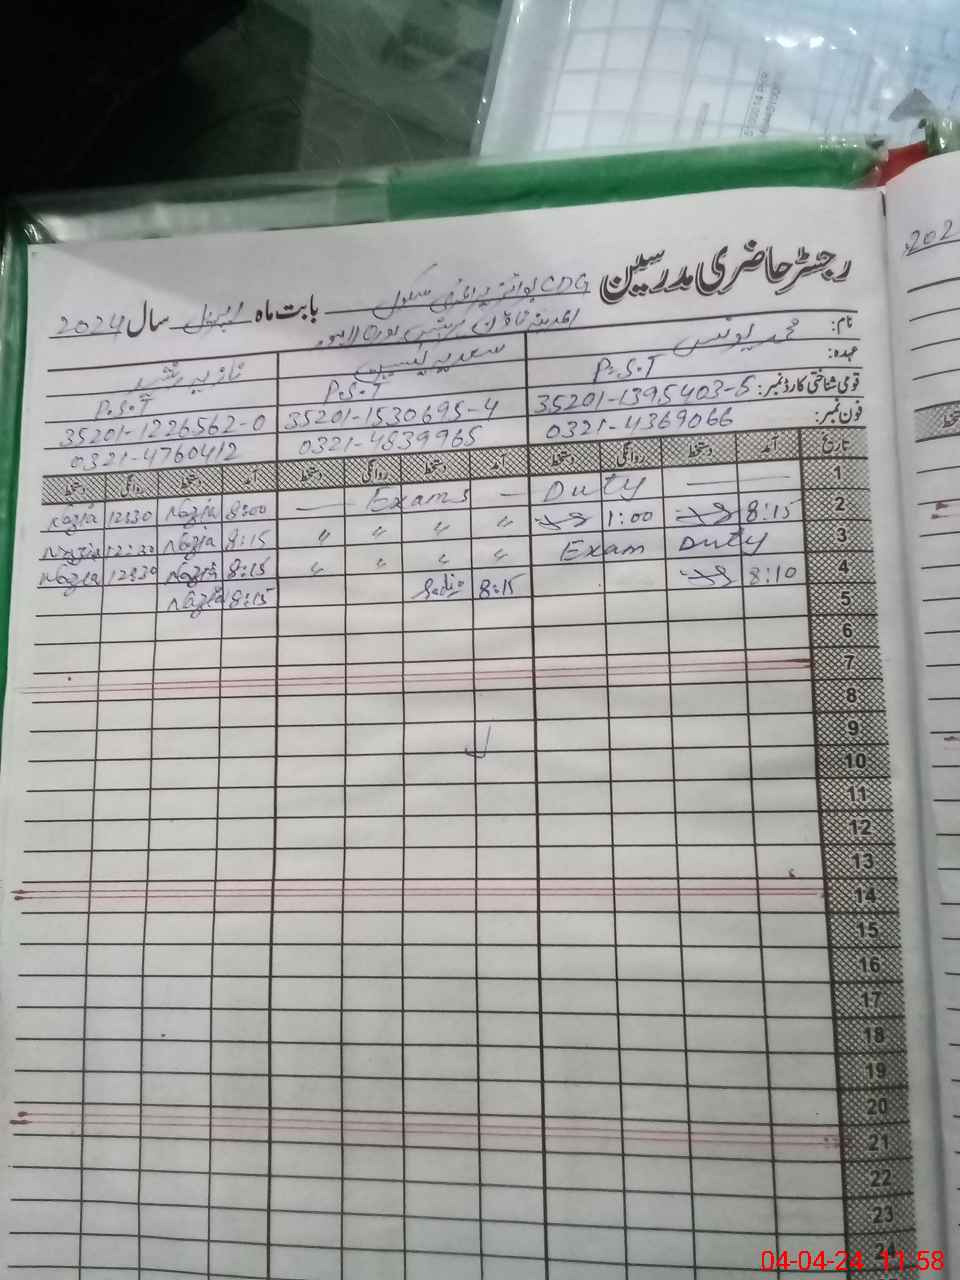 رجسٹر حاضری مدرسین CDG بوائز پرائمری سکول بابت ماہ اپریل سال 2024
نام: محمد یونس سعدیہ یٰسین نازیہ
عہدہ: P.S.T P.S.T P.S.T
قومی شناختی کارڈ نمبر: 35201-1395403-5 35201-1530695-4 35201-1226562-0
فون نمبر: 0321-4369066 0321-4839965 0321-4760412
تاریخ آمد دستخط روانگی دستخط آمد دستخط روانگی دستخط آمد دستخط روانگی دستخط
1 — Exams — Duty — 8:00 Nazia 12:30 Nazia
2 8:15 1:00 〃 〃 〃 〃 8:15 Nazia 12:30 Nazia
3 Exam Duty 〃 〃 〃 〃 8:15 Nazia 12:30 Nazia
4 8:10 8:15 Sadia 8:15 Nazia
5
6
7
8
9
10
11
12
13
14
15
16
17
18
19
20
21
22
23
24
04-04-24 11:58